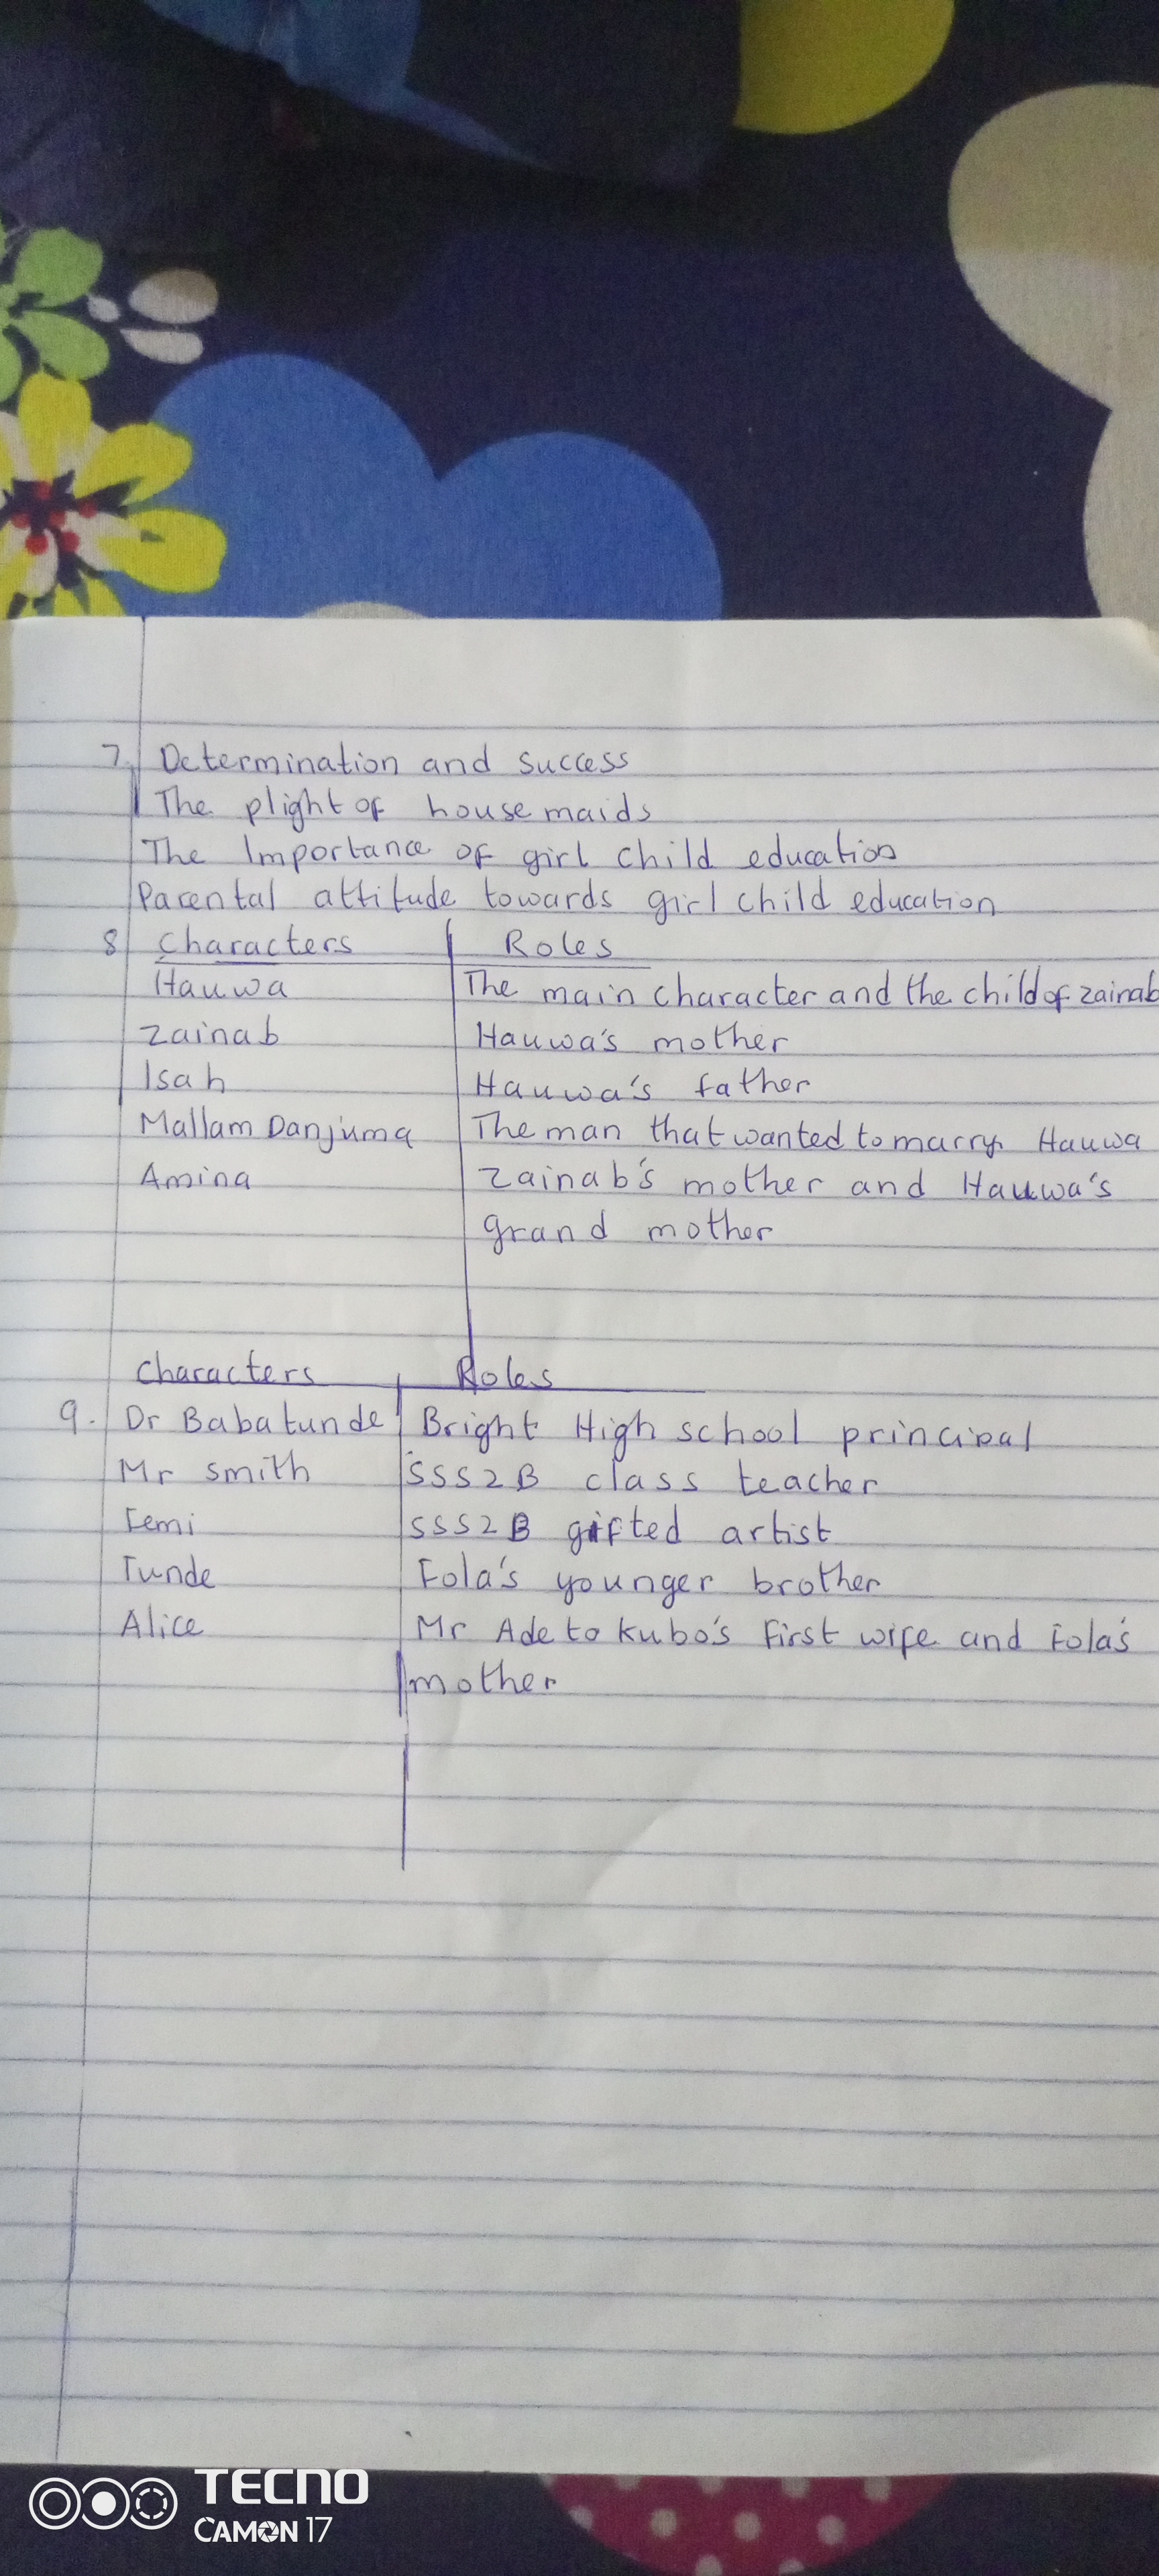 7. Determination and success
The plight of house maids
The Importance of girl child education
Parental attitude towards girl child education
8 Characters Roles
Hauwa The main character and the child of zainab
Zainab Hauwa's mother
Isah Hauwa's father
Mallam Danjuma The man that wanted to marry Hauwa
Amina Zainab's mother and Hauwa's
grand mother
Characters Roles
9. Dr Babatunde Bright High school principal
Mr smith SSS2B class teacher
Femi SSS2B gifted artist
Tunde Fola's younger brother
Alice Mr Adetokubo's first wife and Fola's
mother
TECNO
CAMON 17